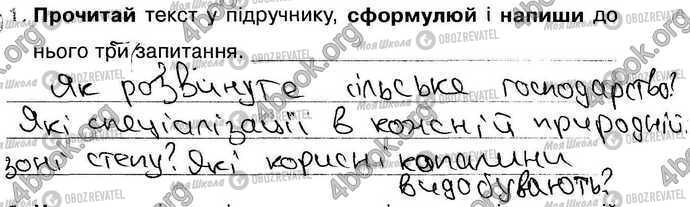 1. Прочитай текст у підручнику, сформулюй і напиши до
нього три запитання.
Як розвинуте сільське господарство?
Які спеціалізації в кожній природній
зоні степу? Які корисні копалини
видобувають?